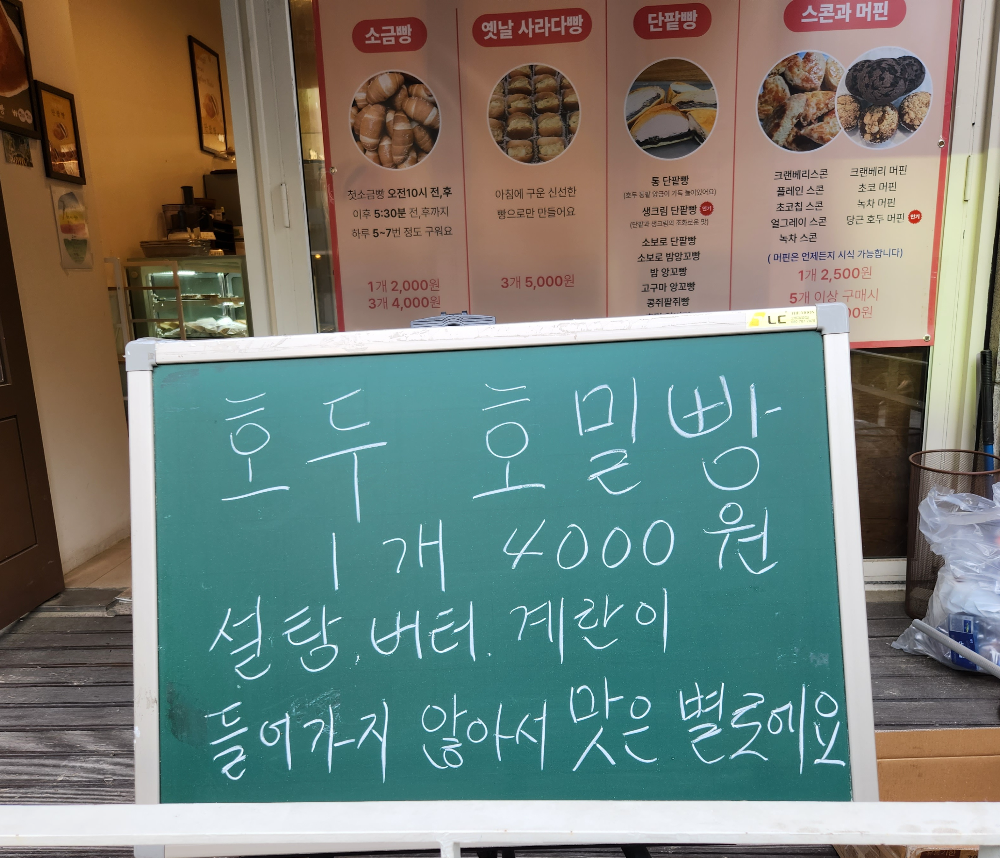 소금빵
첫소금빵 오전10시 전,후
이후 5:30분 전,후까지
하루 5~7번 정도 구워요
1개 2,000원
3개 4,000원
옛날 사라다빵
아침에 구운 신선한
빵으로만 만들어요
3개 5,000원
단팥빵
통 단팥빵
생크림 단팥빵 인기
소보로 단팥빵
소보로 밤앙꼬빵
밤 앙꼬빵
고구마 앙꼬빵
콩쥐팥쥐빵
스콘과 머핀
크랜베리스콘
플레인 스콘
초코칩 스콘
얼그레이 스콘
녹차 스콘
크랜베리 머핀
초코 머핀
녹차 머핀
당근 호두 머핀 인기
( 머핀은 언제든지 시식 가능합니다)
1개 2,500원
5개 이상 구매시
LC
호두 호밀빵
1개 4000원
설탕.버터.계란이
들어가지 않아서 맛은 별로에요